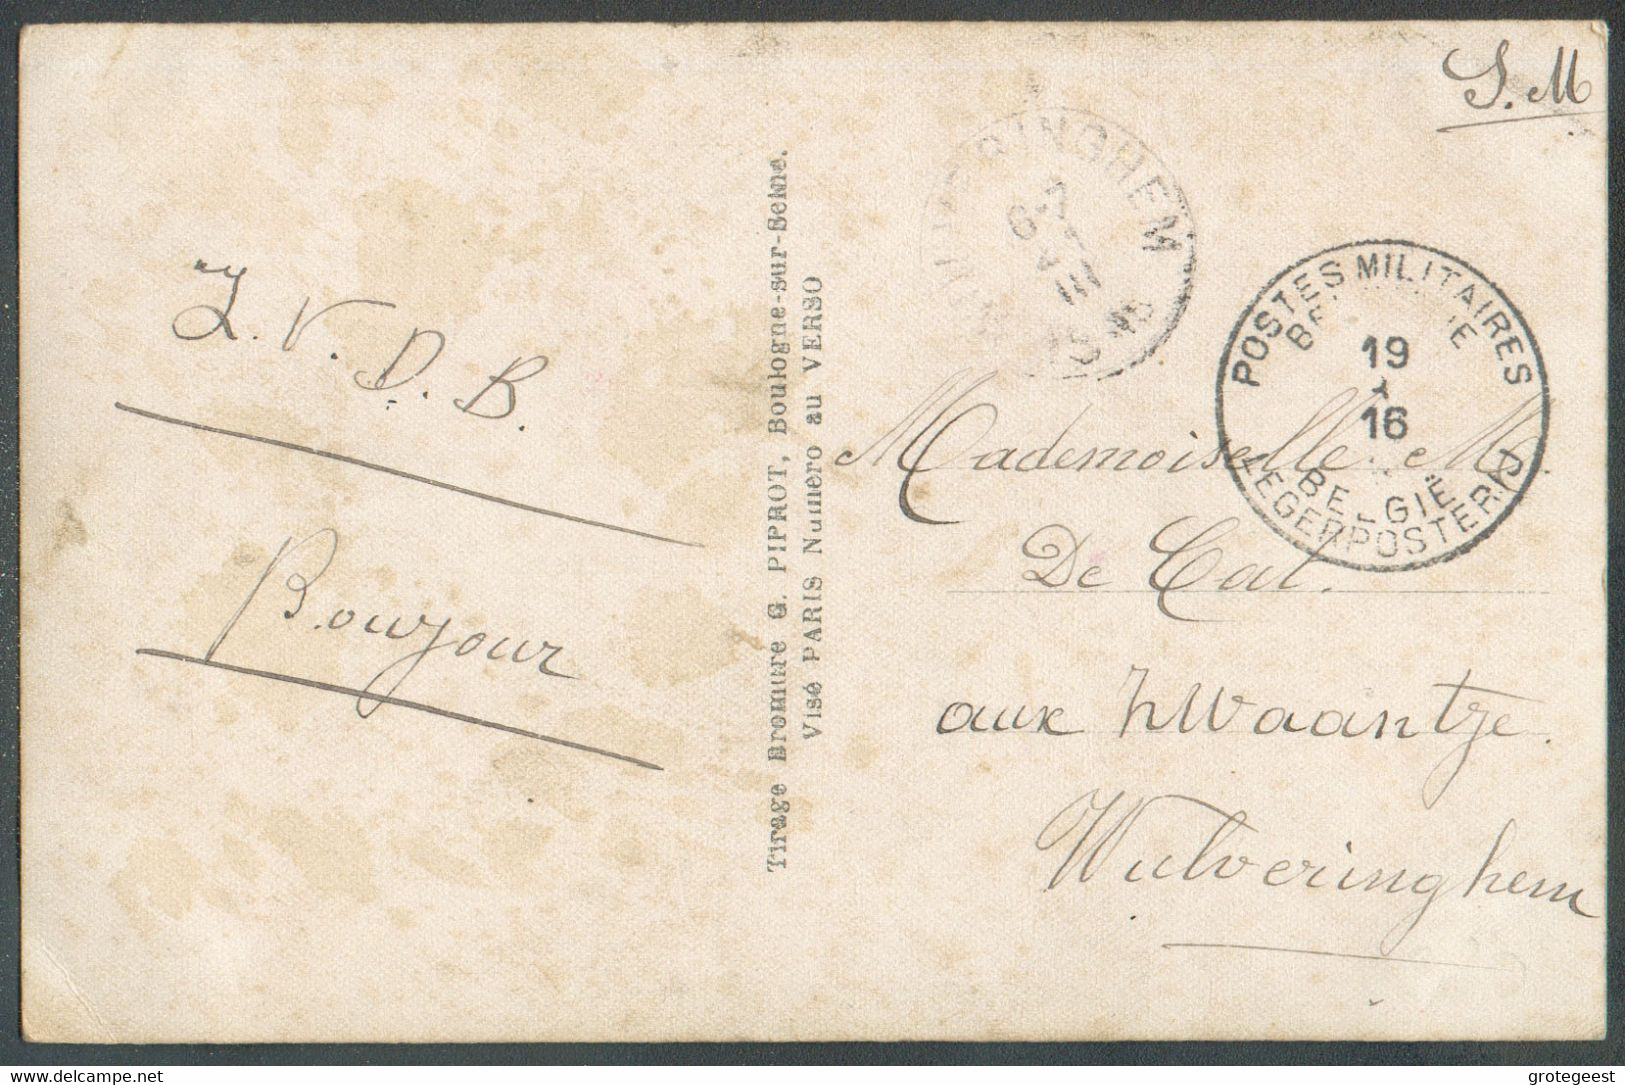 S.M
WULVERINGHEM
6-7
POSTES MILITAIRES
19
16
BELGIE
LEGERPOSTERIJ
L. V. D. B.
Bonjour
Tirage Bromure G. PIPROT, Boulogne-sur-Seine.
Visé PARIS Numero au VERSO
Mademoiselle M.
De Cat.
aux Zwaantje.
Wulveringhem
delcampe.net
grotegeest